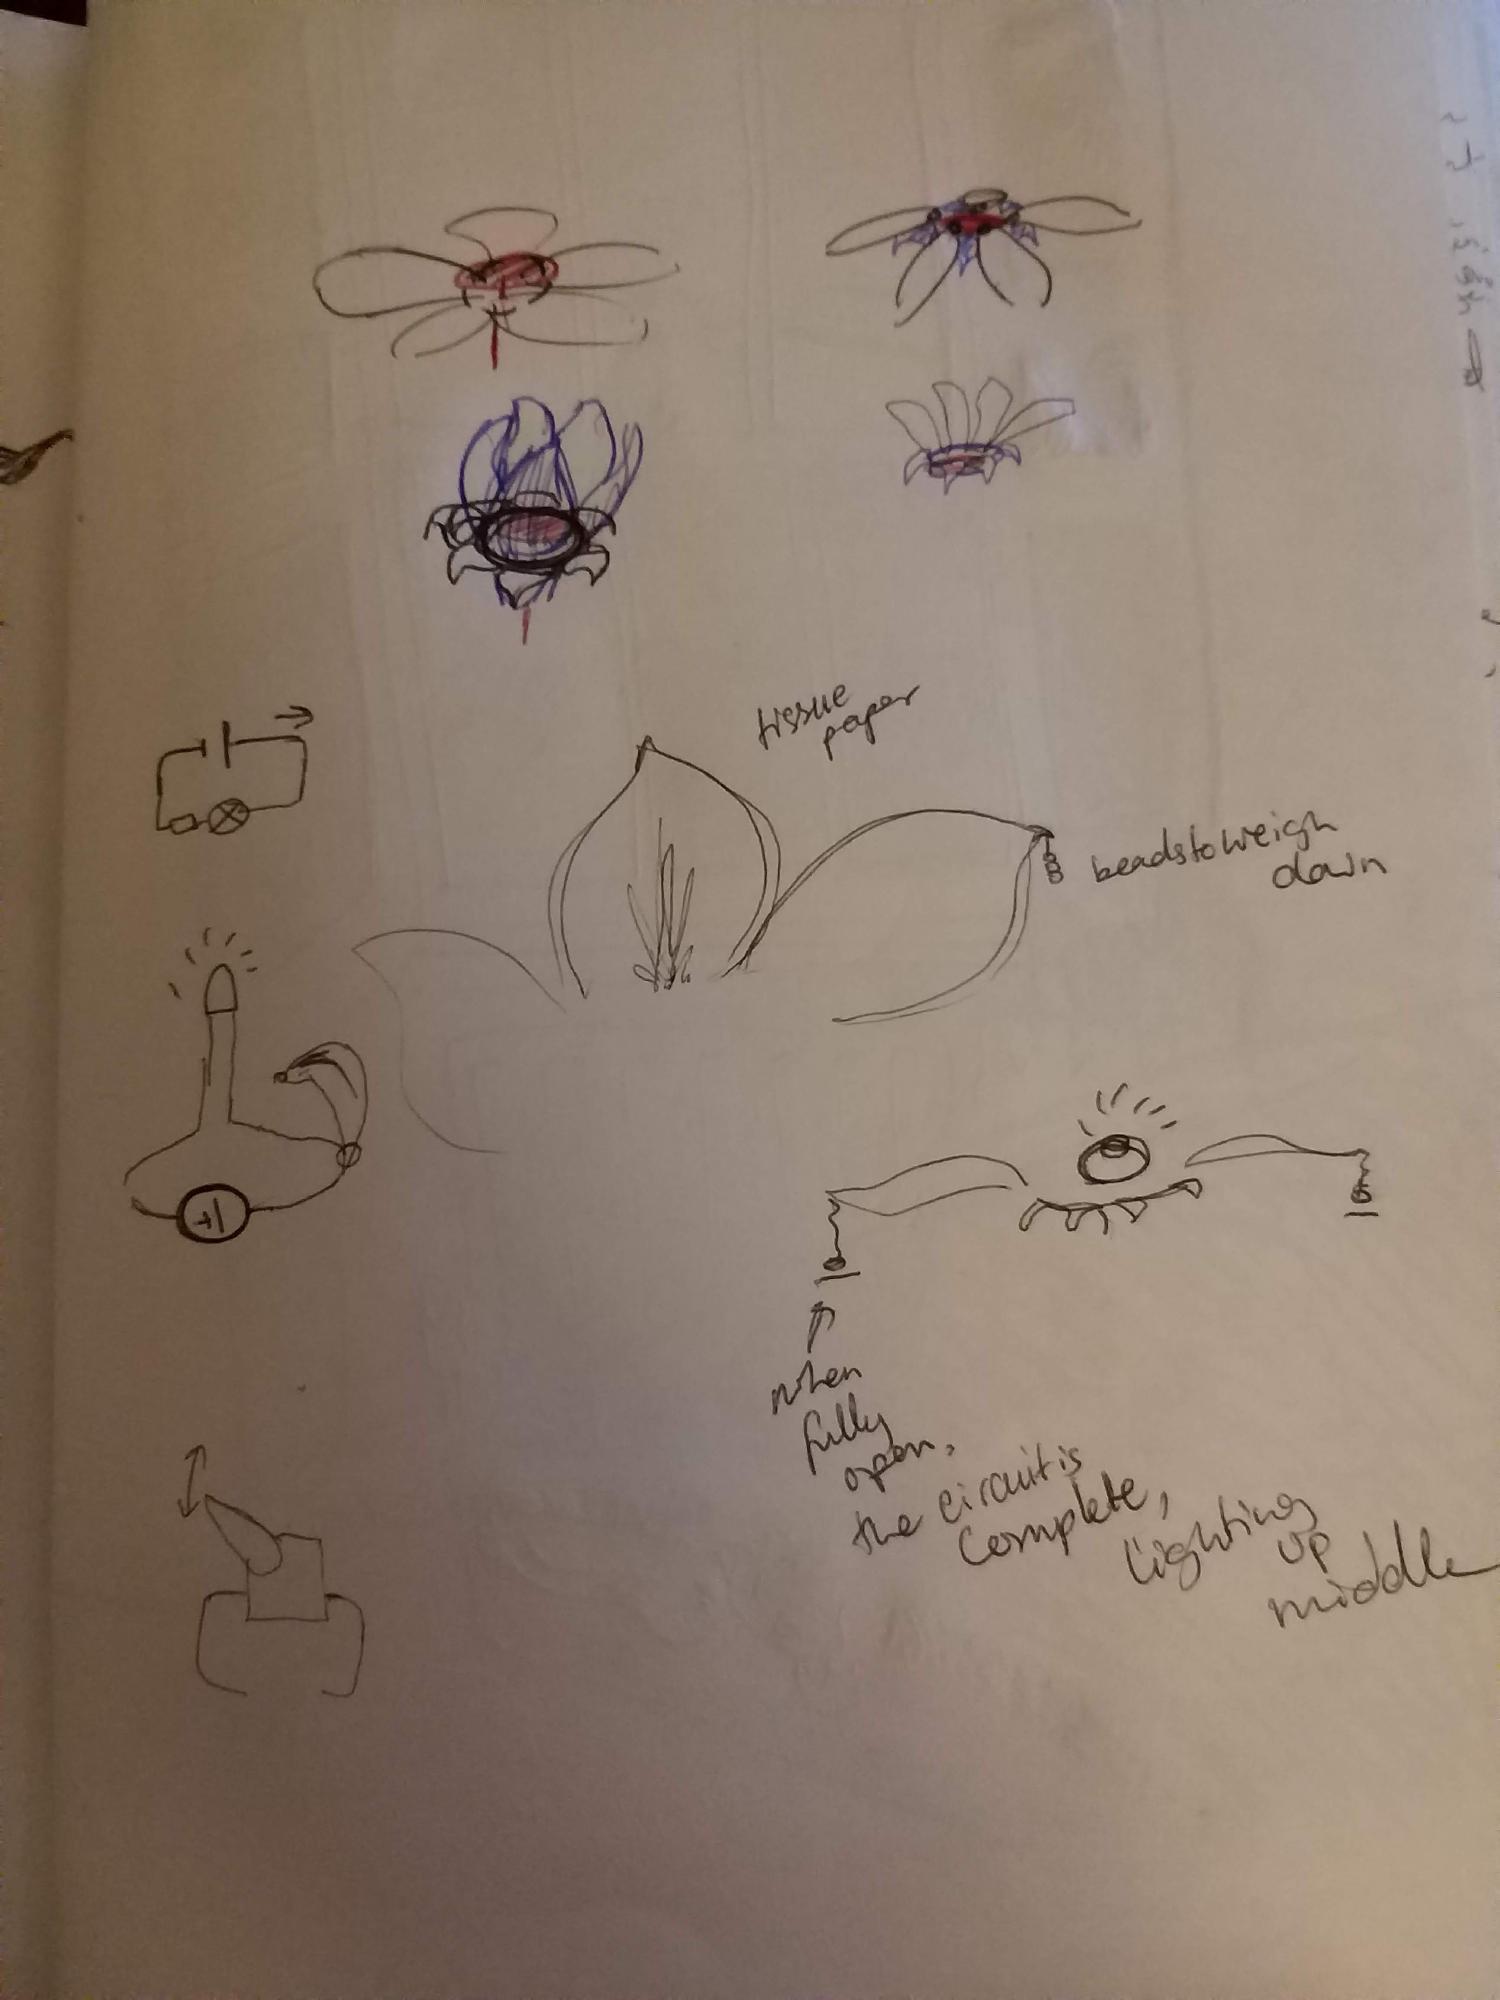 tissue
paper
beads to weigh
down
when
fully
open,
the circuit is
complete,
lighting
up
middle